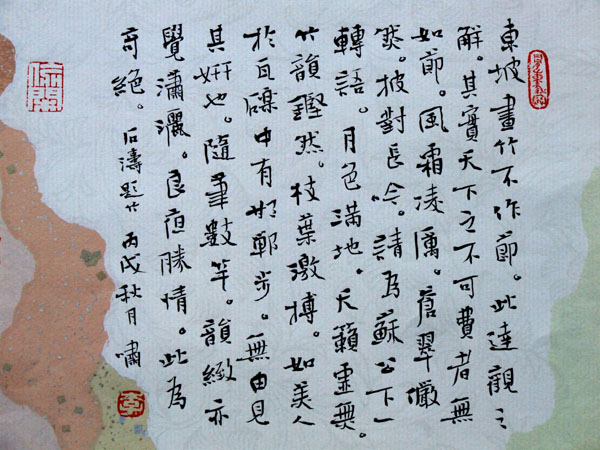 東坡畫竹不作節。此達觀之
解。其實天下之不可費者無
如節。風霜凌厲。蒼翠儼
然。披對長吟。請為蘇公下一
轉語。月色滿地。天籟靈
竹韻鏗然。枝葉激搏。如美人
於瓦礫中有邯鄲步。無由見
其妍也。隨筆數竿。韻緻亦
覺瀟灑。良夜勝情。此為
奇絕。石濤題竹 丙戌秋月嘯
李